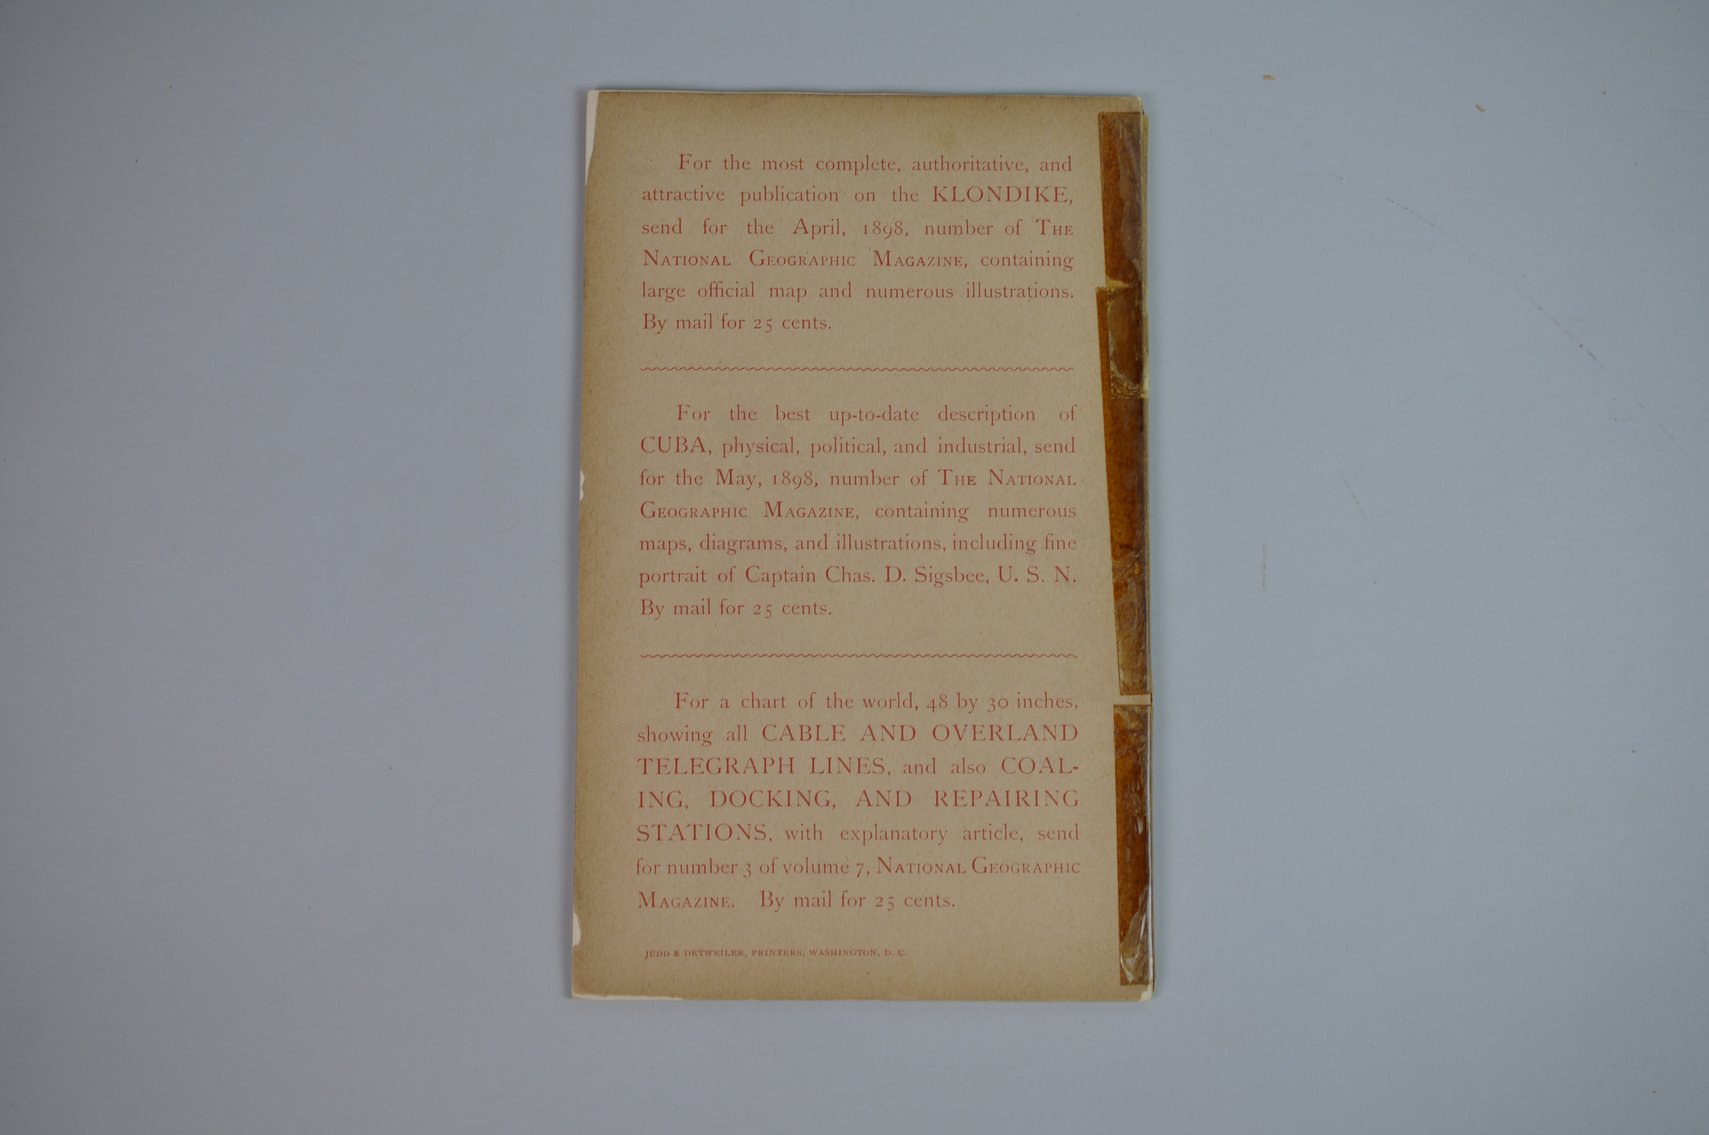 For the most complete, authoritative, and
attractive publication on the KLONDIKE,
send for the April, 1898, number of THE
NATIONAL GEOGRAPHIC MAGAZINE, containing
large official map and numerous illustrations.
By mail for 25 cents.
For the best up-to-date description of
CUBA, physical, political, and industrial, send
for the May, 1898, number of THE NATIONAL
GEOGRAPHIC MAGAZINE, containing numerous
maps, diagrams, and illustrations, including fine
portrait of Captain Chas. D. Sigsbee, U. S. N.
By mail for 25 cents.
For a chart of the world, 48 by 30 inches,
showing all CABLE AND OVERLAND
TELEGRAPH LINES, and also COAL-
ING, DOCKING, AND REPAIRING
STATIONS, with explanatory article, send
for number 3 of volume 7, NATIONAL GEOGRAPHIC
MAGAZINE. By mail for 25 cents.
JUDD & DETWEILER, PRINTERS, WASHINGTON, D. C.